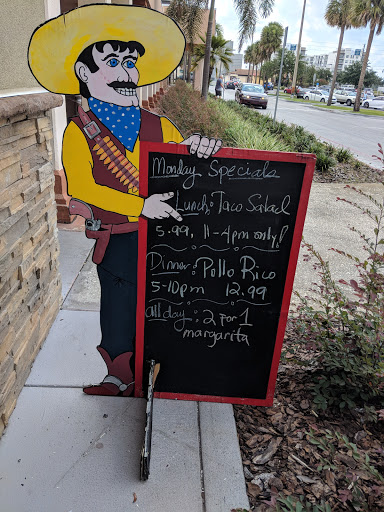 Monday Specials
Lunch: Taco Salad
5.99, 11-4pm only!
Dinner: Pollo Rico
5-10pm 12.99
all day: 2 for 1
margarita